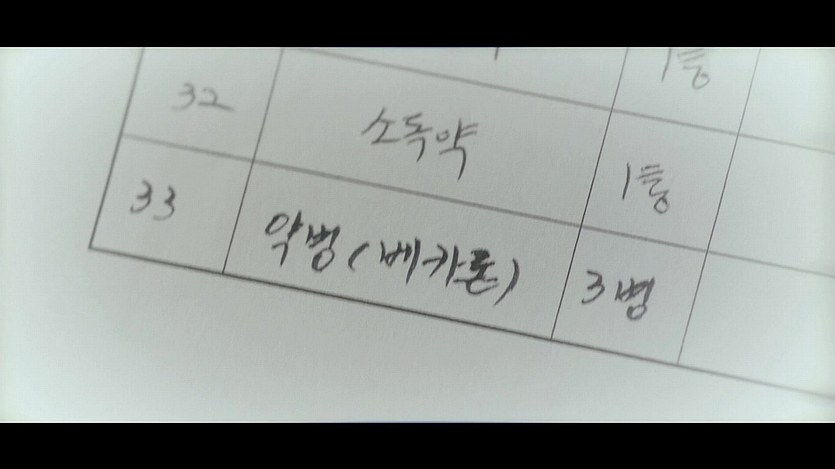 1통
32 소독약 1통
33 약병(베카론) 3병